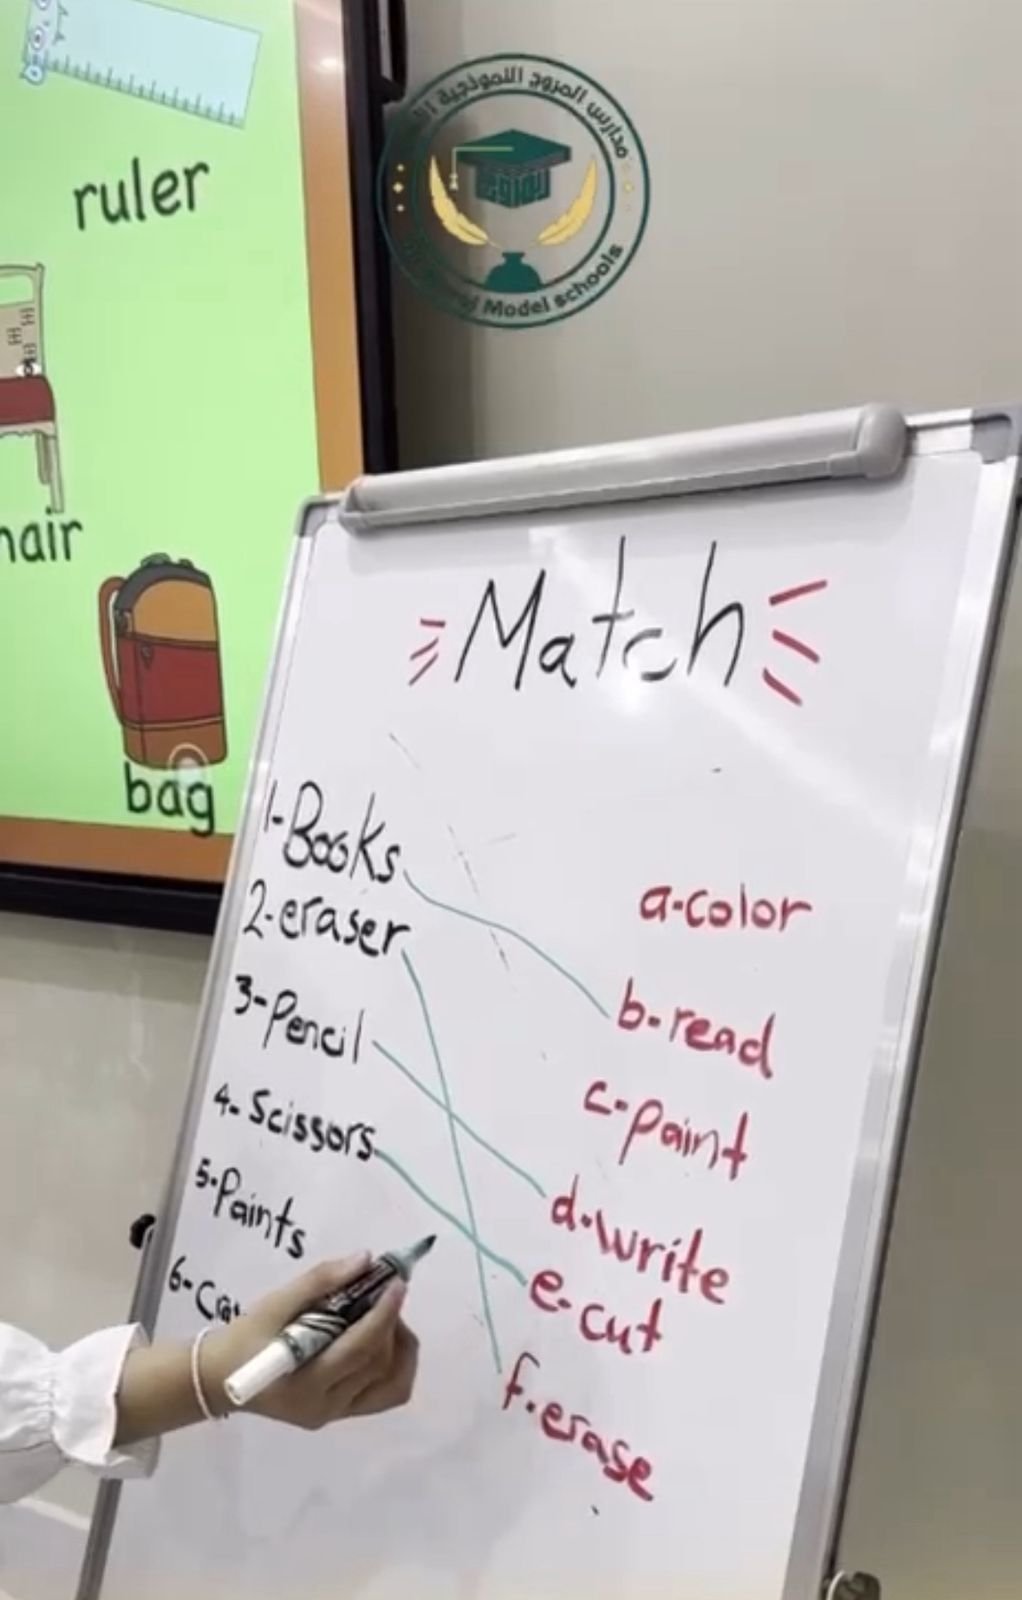 مدارس المروج النموذجية
Model schools
ruler
bag
Match
1-Books
2-eraser
3-Pencil
4-Scissors
5-Paints
6-
a-color
b-read
c-paint
d-write
e-cut
f-erase